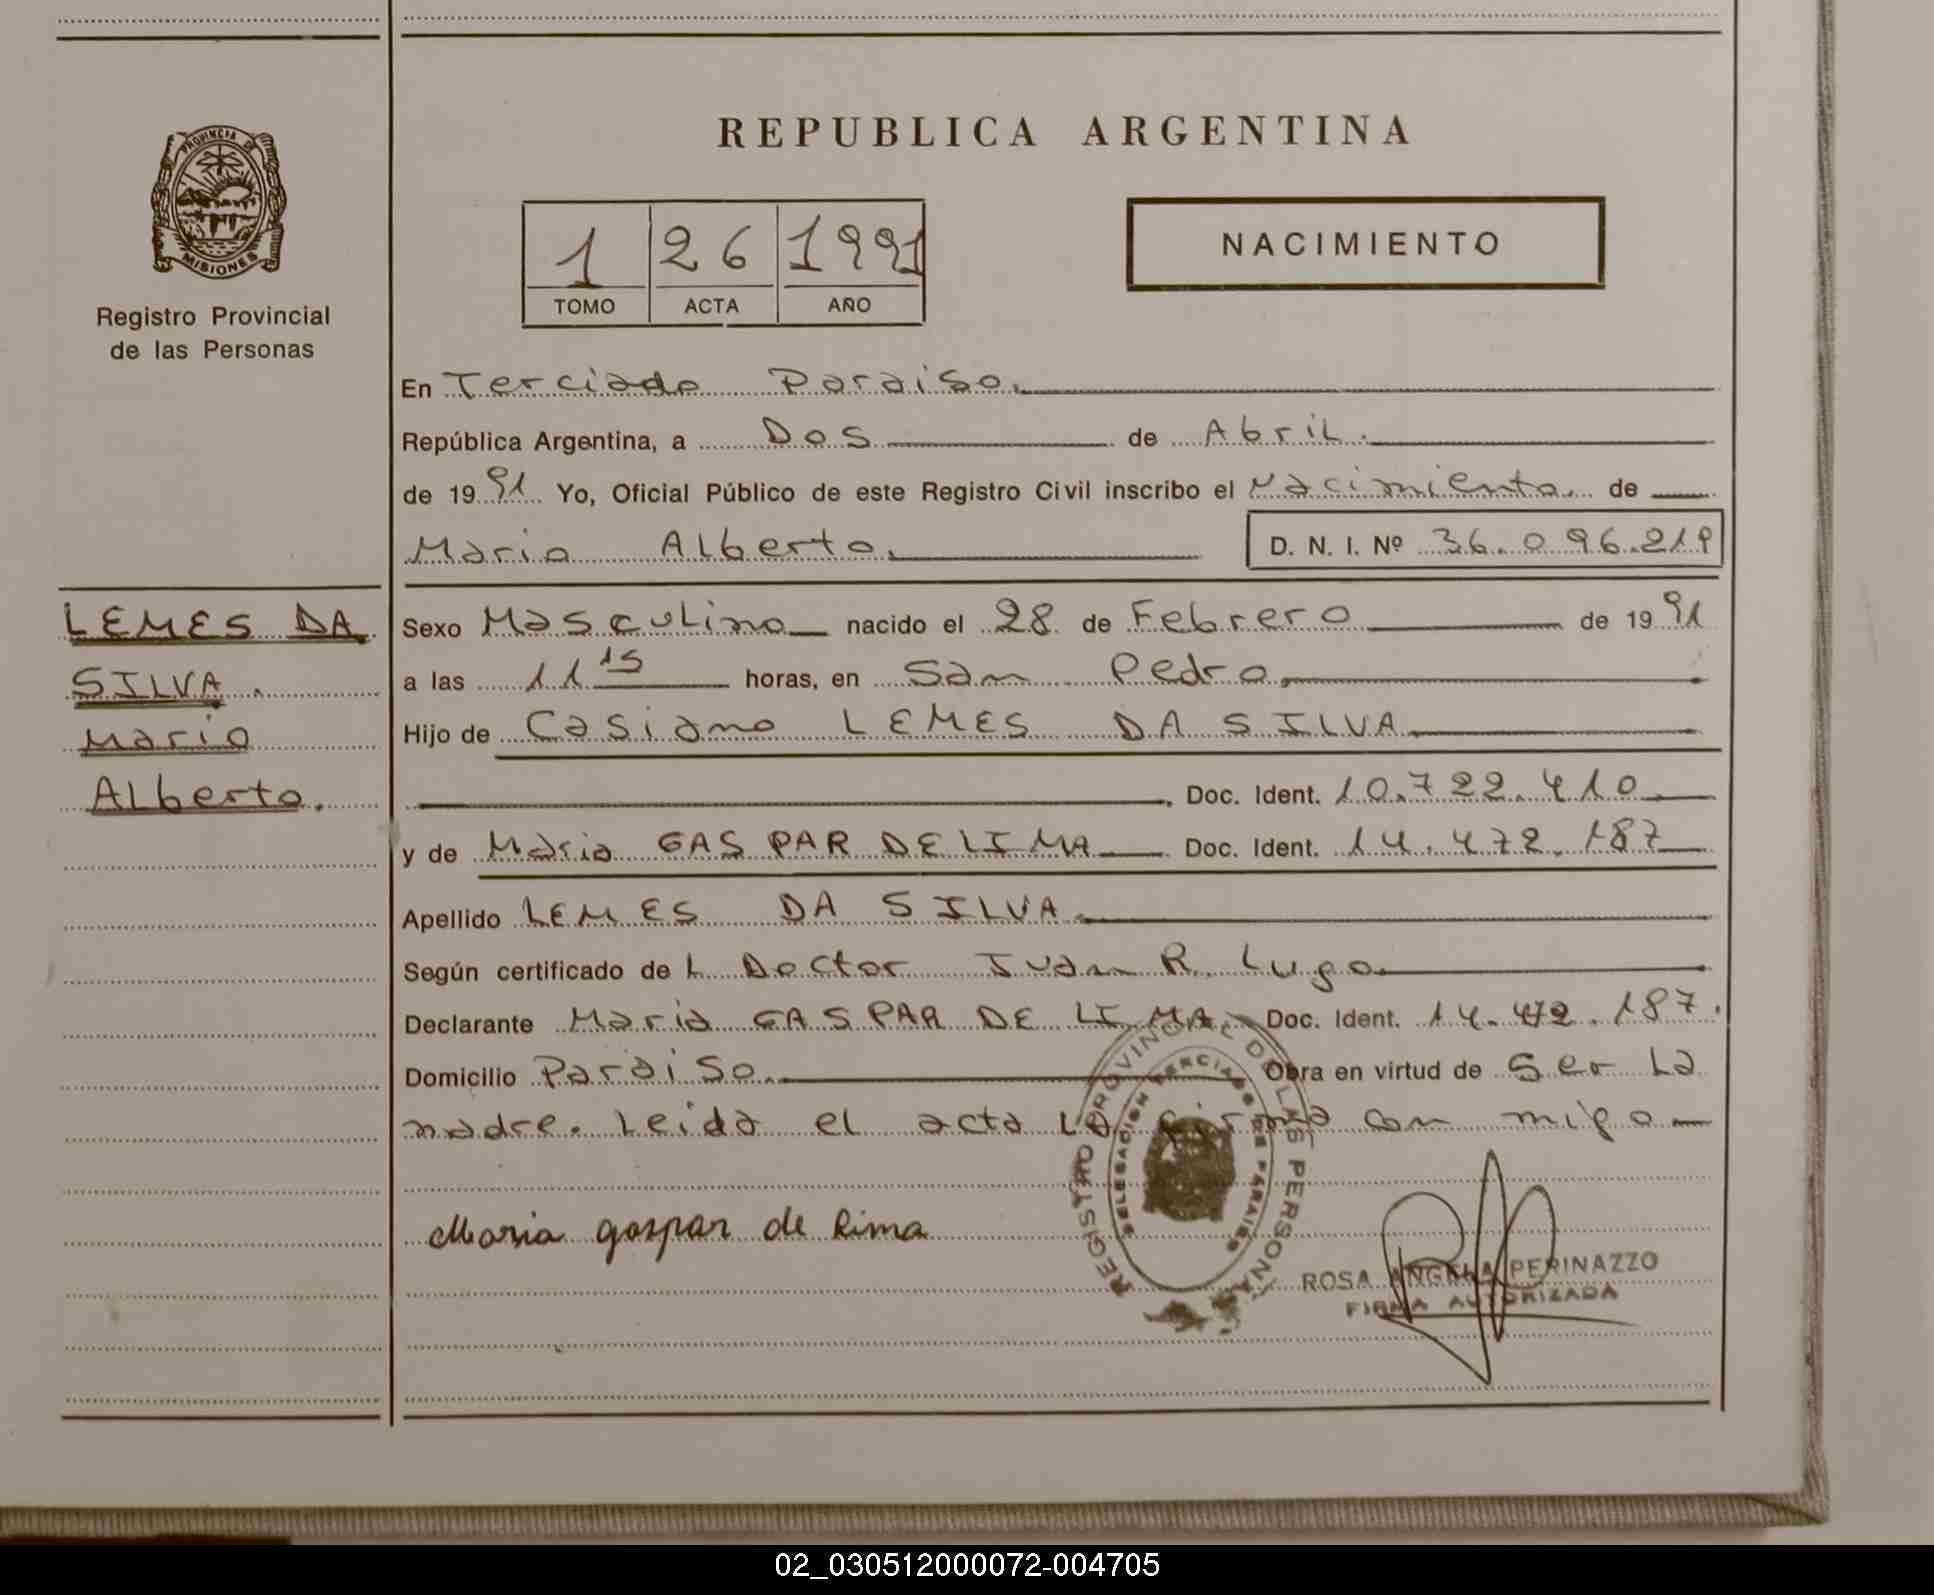 PROVINCIA DE
MISIONES
Registro Provincial
de las Personas
REPUBLICA ARGENTINA
1 26 1991
TOMO ACTA AÑO
NACIMIENTO
En Terciado Paraiso.
República Argentina, a Dos de Abril.
de 19 91 Yo, Oficial Público de este Registro Civil inscribo el Nacimiento de
Mario Alberto. D. N. I. Nº 36.096.219
LEMES DA
SILVA.
Mario
Alberto.
Sexo Masculino nacido el 28 de Febrero de 19 91
a las 11 15 horas, en San Pedro.
Hijo de Casiano LEMES DA SILVA
Doc. Ident. 10.722.410
y de Maria GASPAR DE LIMA Doc. Ident. 14.472.187
Apellido LEMES DA SILVA.
Según certificado de L Doctor Juan R. Lugo.
Declarante Maria GASPAR DE LIMA Doc. Ident. 14.472.187.
Domicilio Paraiso. Obra en virtud de Ser La
madre. Leida el acta La firma con migo
REGISTRO PROVINCIAL DE LAS PERSONAS
DELEGACION TERCIADO PARAISO
Maria gaspar de lima
ROSA ANGELA PERINAZZO
FIRMA AUTORIZADA
02_030512000072-004705